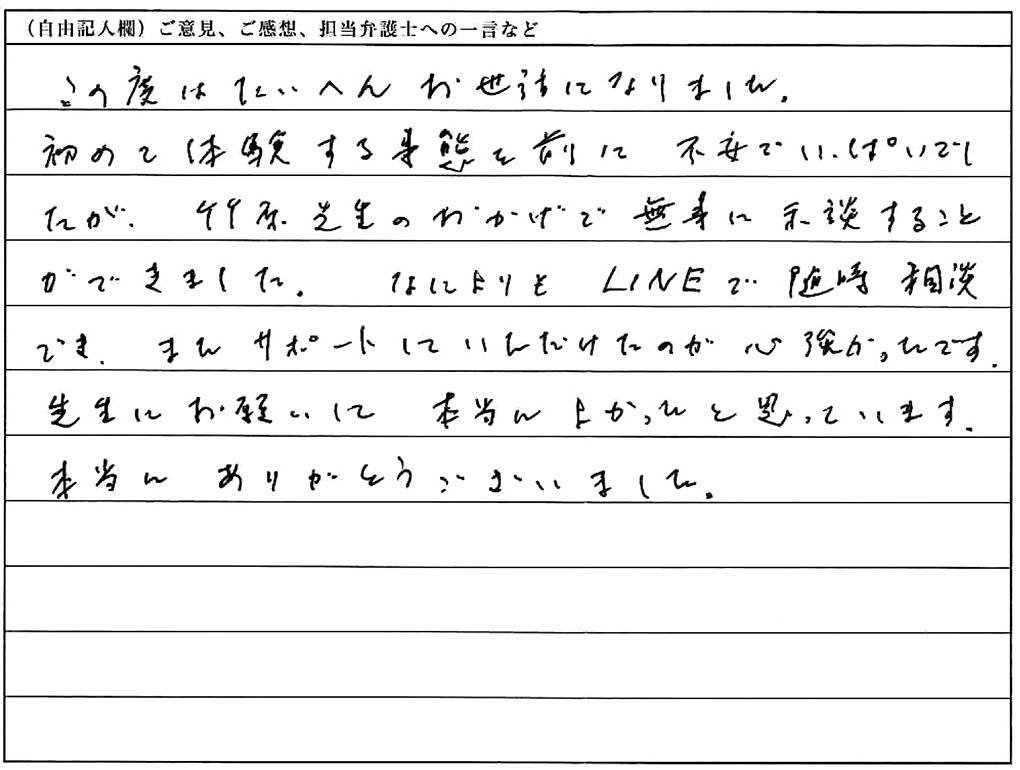 （自由記入欄）ご意見、ご感想、担当弁護士への一言など
この度はたいへんお世話になりました。
初めて体験する事態を前に 不安でいっぱいでし
たが、竹原先生のおかげで無事に示談すること
ができました。なによりも LINEで随時相談
でき、またサポートしていただけたのが心強かったです。
先生にお願いして 本当によかったと思っています。
本当に ありがとうございました。